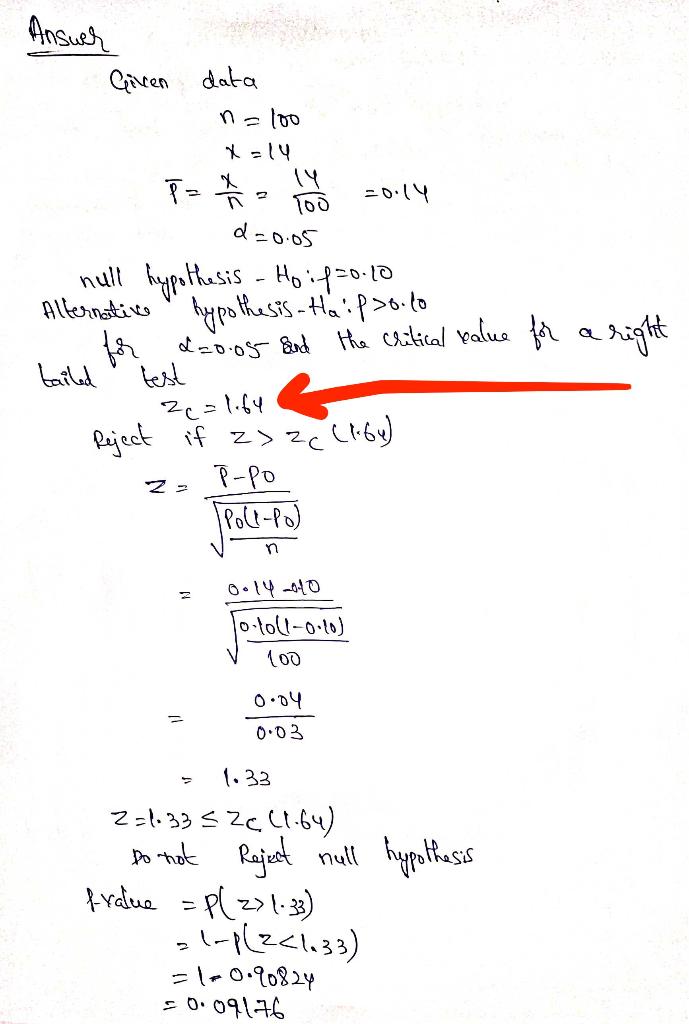 Answer
Given data
n = 100
x = 14
p̅ = x/n = 14/100 = 0.14
α = 0.05
null hypothesis - H₀ : p = 0.10
Alternative hypothesis - Ha : p > 0.10
for α = 0.05 and the critical value for a right
tailed test
Zc = 1.64
Reject if Z > Zc (1.64)
Z = p̅ - p0 / √(p0(1-p0)/n)
= 0.14 - 0.10 / √(0.10(1-0.10)/100)
= 0.04/0.03
= 1.33
Z = 1.33 ≤ Zc (1.64)
Do not Reject null hypothesis
p-value = P(Z > 1.33)
= 1 - P(Z < 1.33)
= 1 - 0.90824
= 0.09176